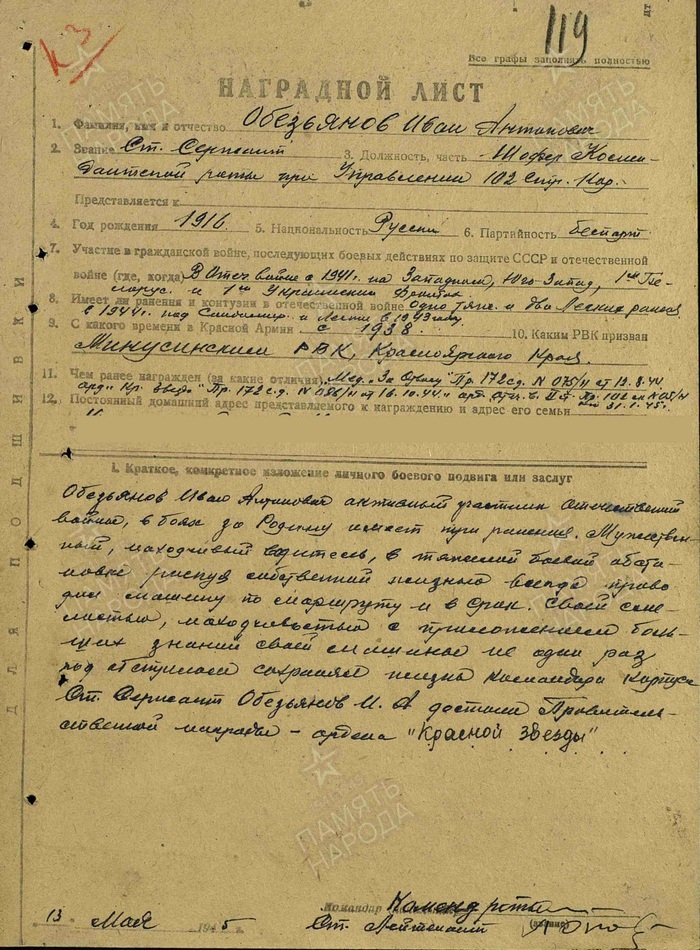 КЗ
119
Все графы заполнять полностью
НАГРАДНОЙ ЛИСТ
1. Фамилия, имя и отчество Обезьянов Иван Антонович
2. Звание Ст. Сержант 3. Должность, часть Шофер Комен-
дантской роты при Управлении 102 Стр. Кор.
Представляется к
4. Год рождения 1916 5. Национальность Русский 6. Партийность беспарт.
7. Участие в гражданской войне, последующих боевых действиях по защите СССР и отечественной
войне (где, когда) В Отеч. войне с 1941 г. на Западном, Юго-Запад, 1ый Бе-
лорус. и 1ый Украинский Фронтах
8. Имеет ли ранения и контузии в отечественной войне Одно тяж. и два Легких ранения
в 1944 г. под и в 1943 году
9. С какого времени в Красной Армии с 1938 10. Каким РВК призван
Минусинским РВК, Красноярского Края.
11. Чем ранее награжден (за какие отличия) Мед. "За Отвагу" Пр. 172 с.д. N 075/н от 12.8.44.
орд. "Кр. Звезд" Пр. 172 с.д. N 086/н от 16.10.44 г. орд. Отеч. в. II ст. Пр. 102 ск N 05/н
12. Постоянный домашний адрес представляемого к награждению и адрес его семьи от 31.1.45 г.
1. Краткое, конкретное изложение личного боевого подвига или заслуг
Обезьянов Иван Антонович активный участник Отечественной
войны, в боях за Родину имеет три ранения. Мужествен-
ный, находчивый водитель, в тяжелой боевой обста-
новке рискуя собственной жизнью всегда приво
дил машину по маршруту и в срок. Своей сме-
лостью, находчивостью с приложением боль-
ших знаний своей машины не один раз
под обстрелом сохранял жизнь Командира Корпуса
Ст. Сержант Обезьянов И. А достоин Правитель-
ственной награды – ордена "Красной Звезды"
Командир Команд роты
Ст. Лейтенант
13 Мая 1945 г.
ДЛЯ ПОДШИВКИ
ПАМЯТЬ НАРОДА
ПАМЯТЬ НАРОДА
ПАМЯТЬ НАРОДА